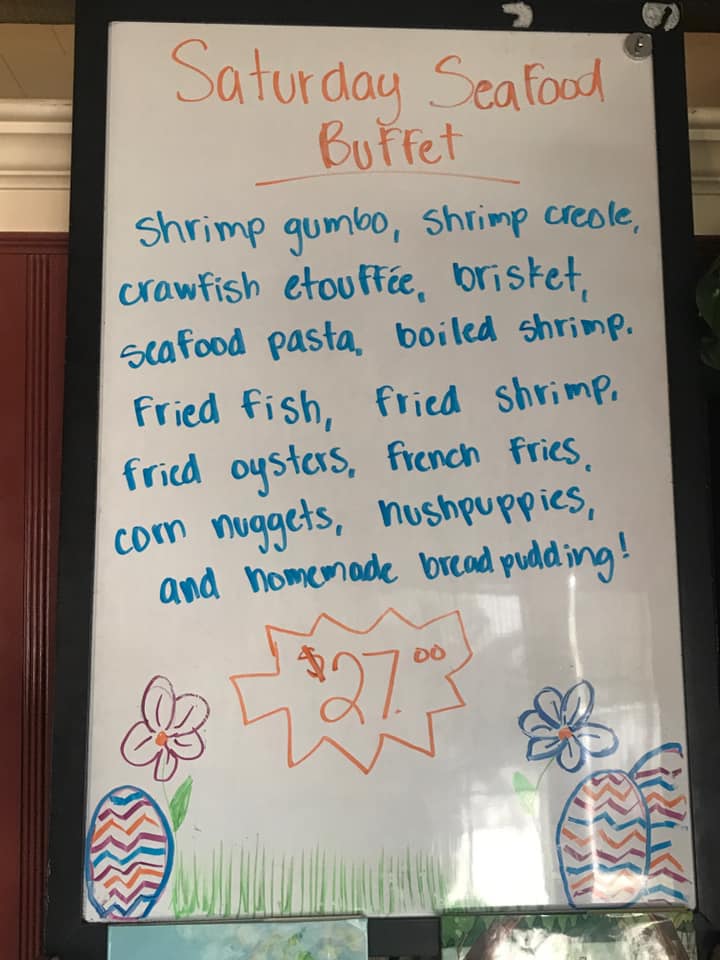 Saturday Seafood
Buffet
Shrimp gumbo, shrimp creole,
crawfish etouffée, brisket,
seafood pasta, boiled shrimp.
Fried fish, fried shrimp,
fried oysters, french fries,
corn nuggets, hushpuppies,
and homemade bread pudding!
$27.00